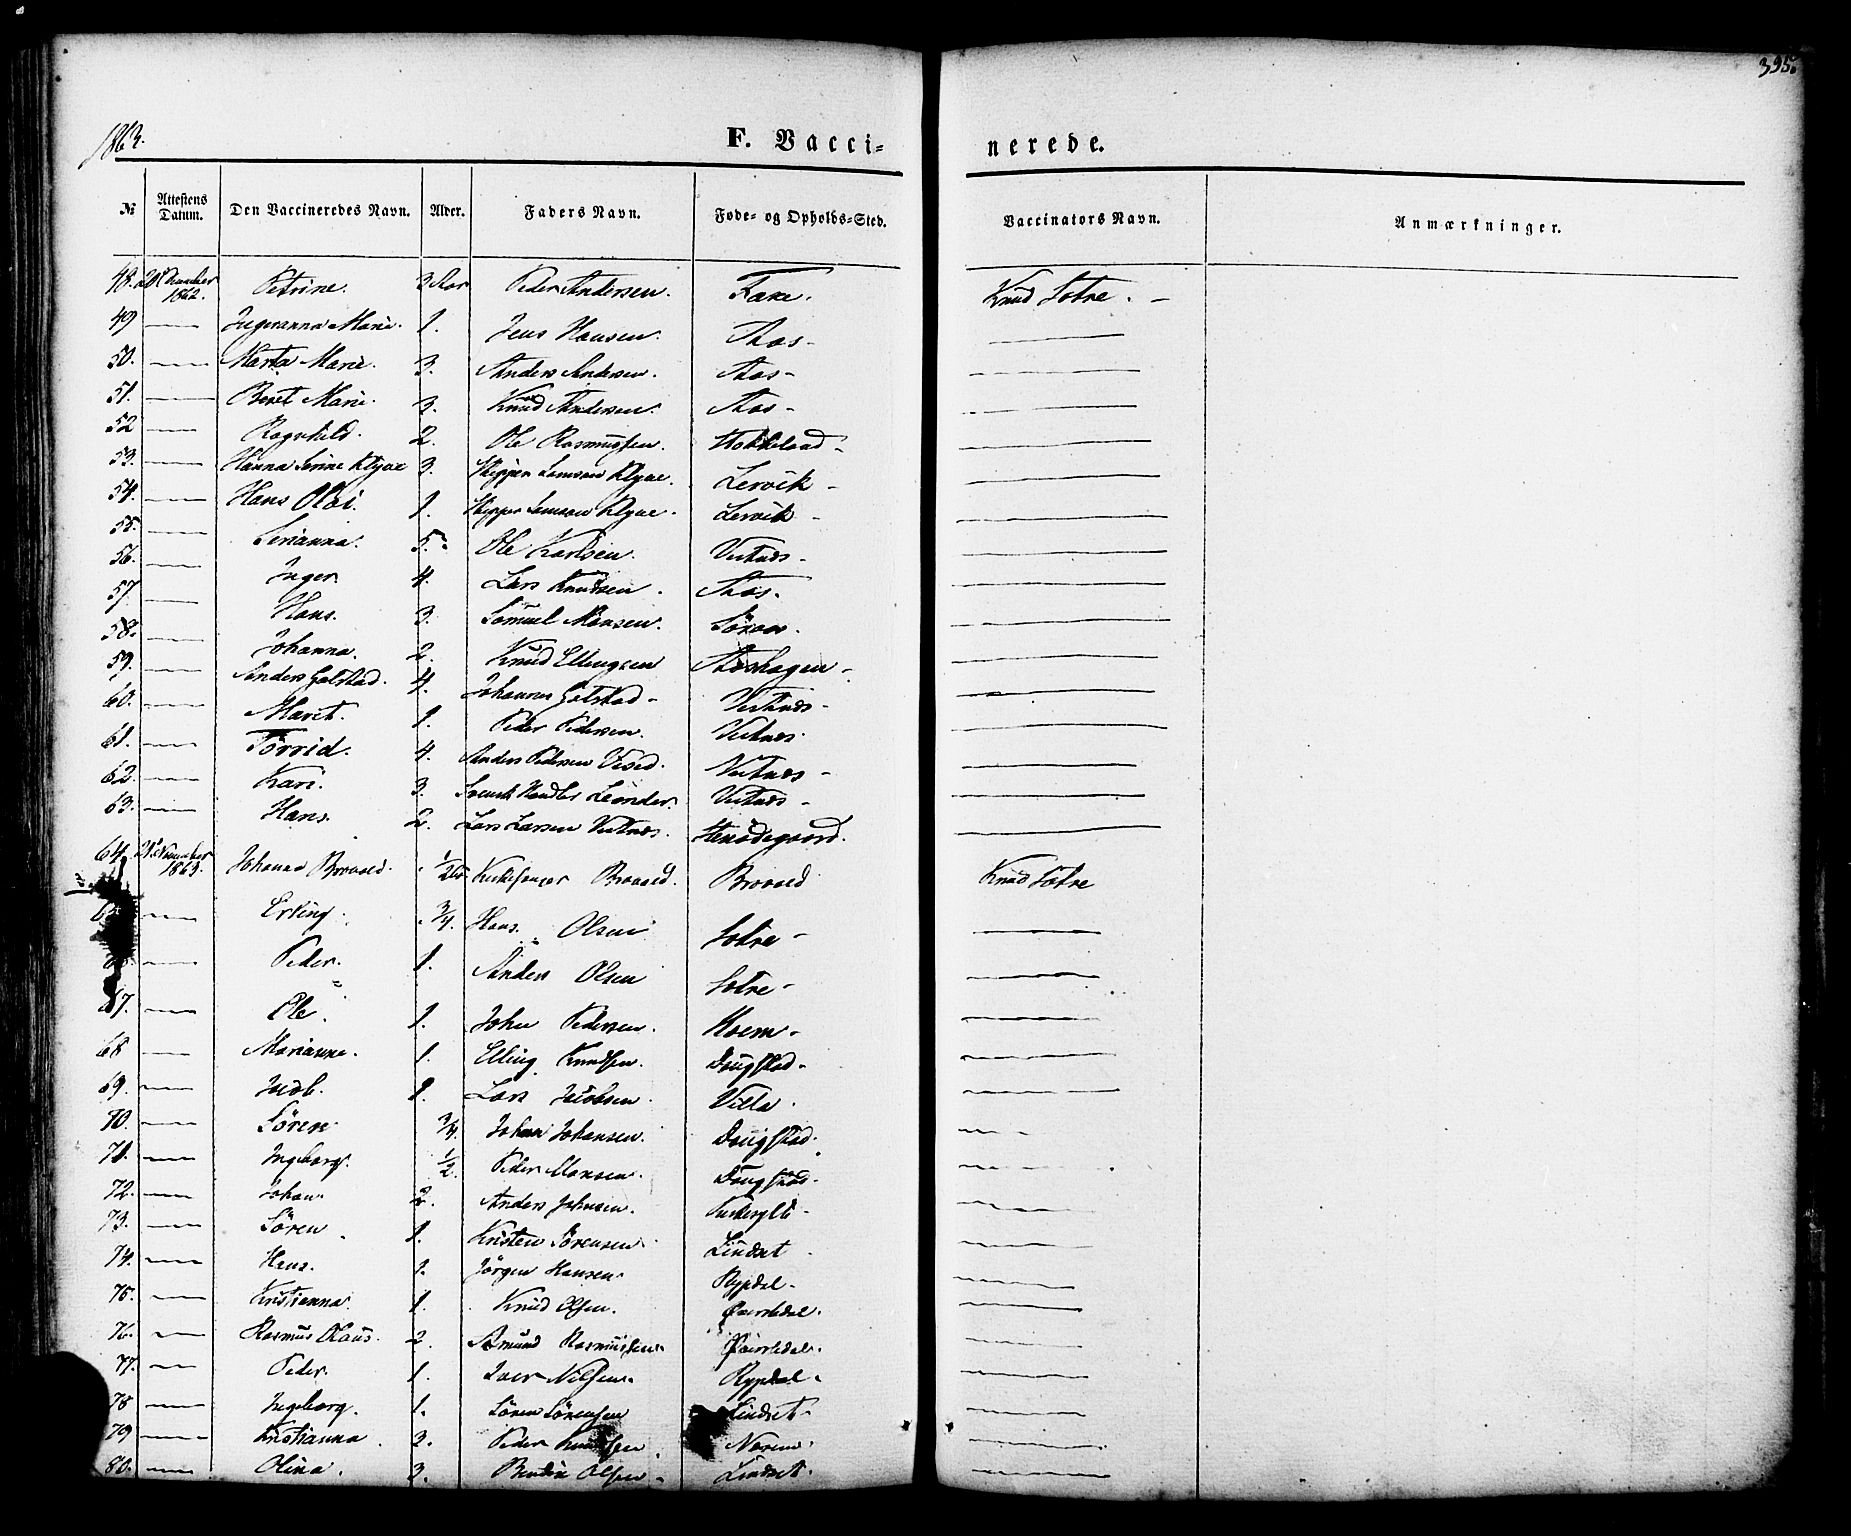 395.
1863.
F. Vaccinerede.
№ Attestens Datum. Den Vaccineredes Navn. Alder. Faders Navn. Føde- og Opholds-Sted. Vaccinators Navn. Anmærkninger.
48. 1862. Petrine. 3 Aar Peder Andersen. Knud Sotre. —
49 — Ingeranna Marie. 1. Jens Hansen. Aas — —
50. — Marta Marie. 3. Anders Andersen. Aas — —
51. — Beret Marie. 3. Knud Andersen. Aas — —
52 — Ragnhild. 2. Ole Rasmussen. —
53. — Hanna Serine 3. Skipper Lervik — —
54. — Hans Oloi. 1. Skipper Lervik — —
55. — Serianna. 5. Ole Karlsen. Vestnæs — —
56. — Inger. 4. Lars Knudsen. Aas. —
57 — Hans. 3. Samuel Monsen. —
58. — Johanna. 2. Knud Ellingsen Aashagen — —
59. — Anders Galstad. 4. Johannes Galstad — Vestnæs — —
60. — Marit. 1. Peder Pedersen. Vestnæs. —
61. — Torrid. 4. Anders Pedersen Vestnæs — —
62. — Kari. 3. Vestnæs — —
63. — Hans. 2. Lars Larsen Vestnæs. —
64. 21 November 1863. Johanna Brovold. 1/2 Kirkesanger Brovold. Brovold Knud Sotre
— Erling. 3/4. Hans Olsen Sotre — —
— Peder. 1. Anders Olsen Sotre — —
67. — Ole. 1. John Pedersen. Moem — —
68 — Marianne. 1. Elling Knudsen. Daugstad — —
69. — Jacob. 1. Lars Jacobsen. Villa. —
70. — Sören. 3/4. Johan Johansen. Daugstad. —
71. — Ingeborg. 1/2. Peder Monsen. Daugstad. —
72. — Johan. 2. Anders Johnsen. —
73. — Sören 1. Kristen Sörensen. Lindset —
74. — Hans. 1. Jörgen Hansen. Rypdal — —
75. — Kristianna. 1. Knud Olsen. —
76. — Rasmus Olaus. 2. Amund Rasmussen. —
77. — Peder. 1. Iver Nilsen. Rypdal. —
78 — Ingeborg. 1. Sören Sörensen Lindset. —
79 — Kristianna. 2. Peder Knudsen. —
80. — Olina. 3. Olsen — Lindset. —